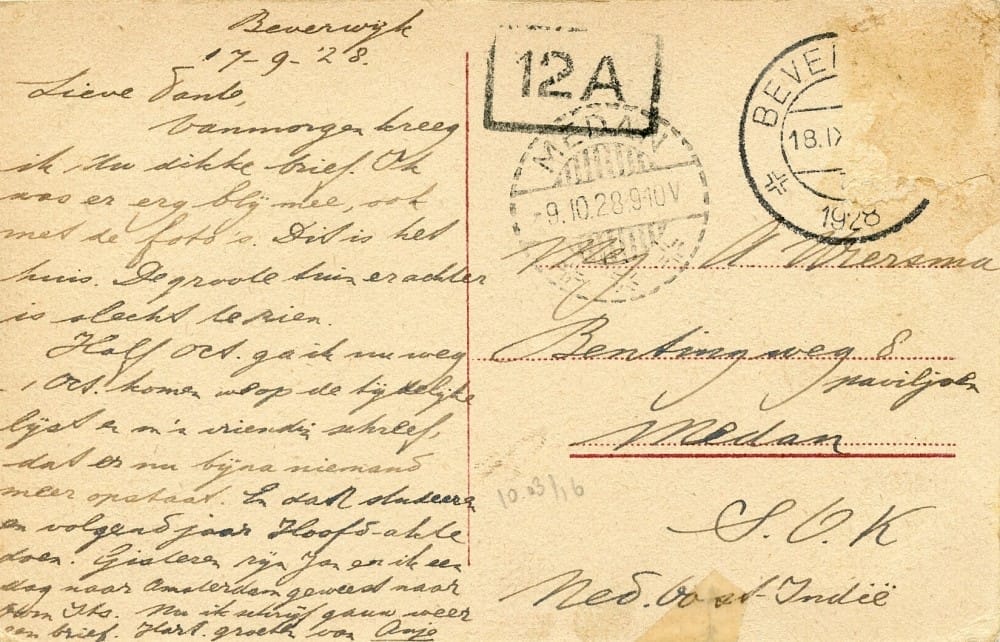 Beverwijk
17-9-'28.
Lieve Tante,
Vanmorgen kreeg
ik Uw dikke brief. Ik
was er erg blij mee, ook
met de foto's. Dit is het
huis. De groote tuin erachter
is slecht te zien.
Half Oct. ga ik nu weg
1 Oct. komen we op de tijdelijke
lijst en m'n vriendin schreef,
dat er nu bijna niemand
meer opstaat. En dan studeeren
en volgend jaar Hoofd-akte
doen. Gisteren zijn Jan en ik een
dag naar Amsterdam geweest naar
oom Ths. Nu ik schrijf gauw weer
een brief. Hart. groeten van Anje
12A
MEDAN
-9.10.28.9-10V
BEVE
18.IX
1928
Mej. A Wiersma
Bentingweg 8
paviljoen
Medan
S.O.K
Ned. Oost-Indië
10.03/16